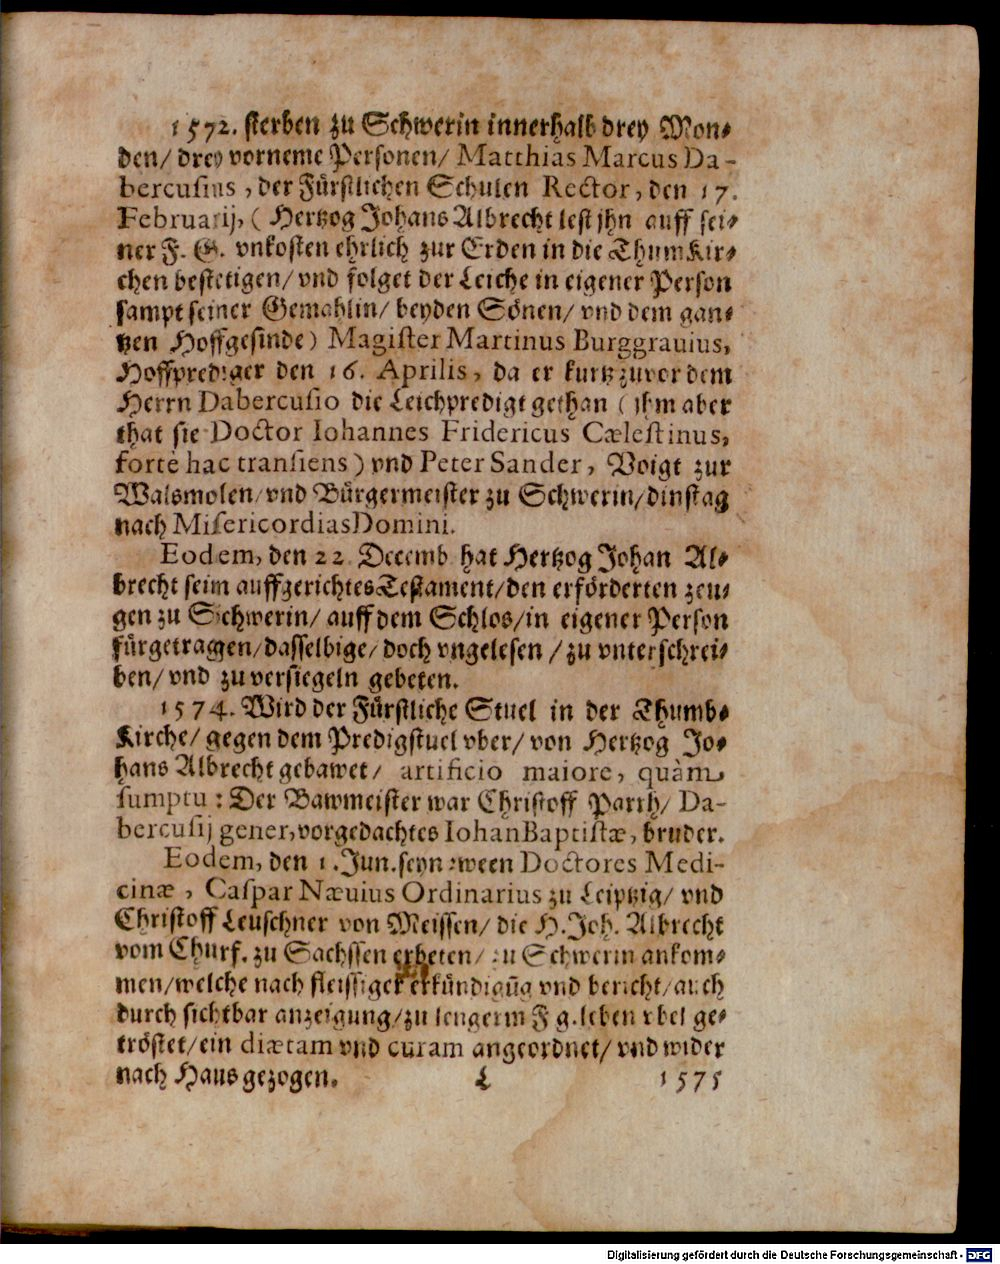 1572. sterben zu Schwerin innerhalb drey Mon⸗
den/ drey vorneme Personen/ Matthias Marcus Da-
bercusius, der Fürstlichen Schulen Rector, den 17.
Februarij, ( Hertzog Johans Albrecht lest jhn auff sei⸗
ner F. G. vnkosten ehrlich zur Erden in die Thum Kir⸗
chen bestetigen/ vnd folget der Leiche in eigener Person
sampt seiner Gemahlin/ beyden Sönen/ vnd dem gan⸗
tzen Hoffgesinde) Magister Martinus Burggrauius,
Hoffprediger den 16. Aprilis, da er kurtz zuvor dem
Herrn Dabercusio die Leichpredigt gethan ( jhm aber
that sie Doctor Iohannes Fridericus Cælestinus,
fortè hac transiens) vnd Peter Sander, Voigt zur
Walsmolen/ vnd Bürgermeister zu Schwerin/ dinstag
nach Misericordias Domini.
Eodem, den 22. Decemb. hat Hertzog Johan Al⸗
brecht seim auffgerichtes Testament/ den erförderten zeu⸗
gen zu Schwerin/ auff dem Schlos/ in eigener Person
fürgetragen/ dasselbige/ doch vngelesen / zu vnterschrei⸗
ben/ vnd zu versiegeln gebeten.
1574. Wird der Fürstliche Stuel in der Thumb⸗
Kirche/ gegen dem Predigstuel vber/ von Hertzog Jo⸗
hans Albrecht gebawet/ artificio maiore, quàm
sumptu : Der Bawmeister war Christoff Parrh/ Da-
bercusij gener, vorgedachtes Iohan Baptistæ, bruder.
Eodem, den 1. Jun. seyn zween Doctores Medi-
cinæ , Caspar Næuius Ordinarius zu Leiptzig/ vnd
Christoff Leuschner von Meissen/ die H. Joh. Albrecht
vom Churf. zu Sachssen erbeten/ zu Schwerin ankom⸗
men/ welche nach fleissiger erkündigūg vnd bericht/ auch
durch sichtbar anzeigung/ zu lengerm F g. leben vbel ge⸗
tröstet/ ein diætam vnd curam angeordnet/ vnd wider
nach Haus gezogen.
L 1575
Digitalisierung gefördert durch die Deutsche Forschungsgemeinschaft - DFG